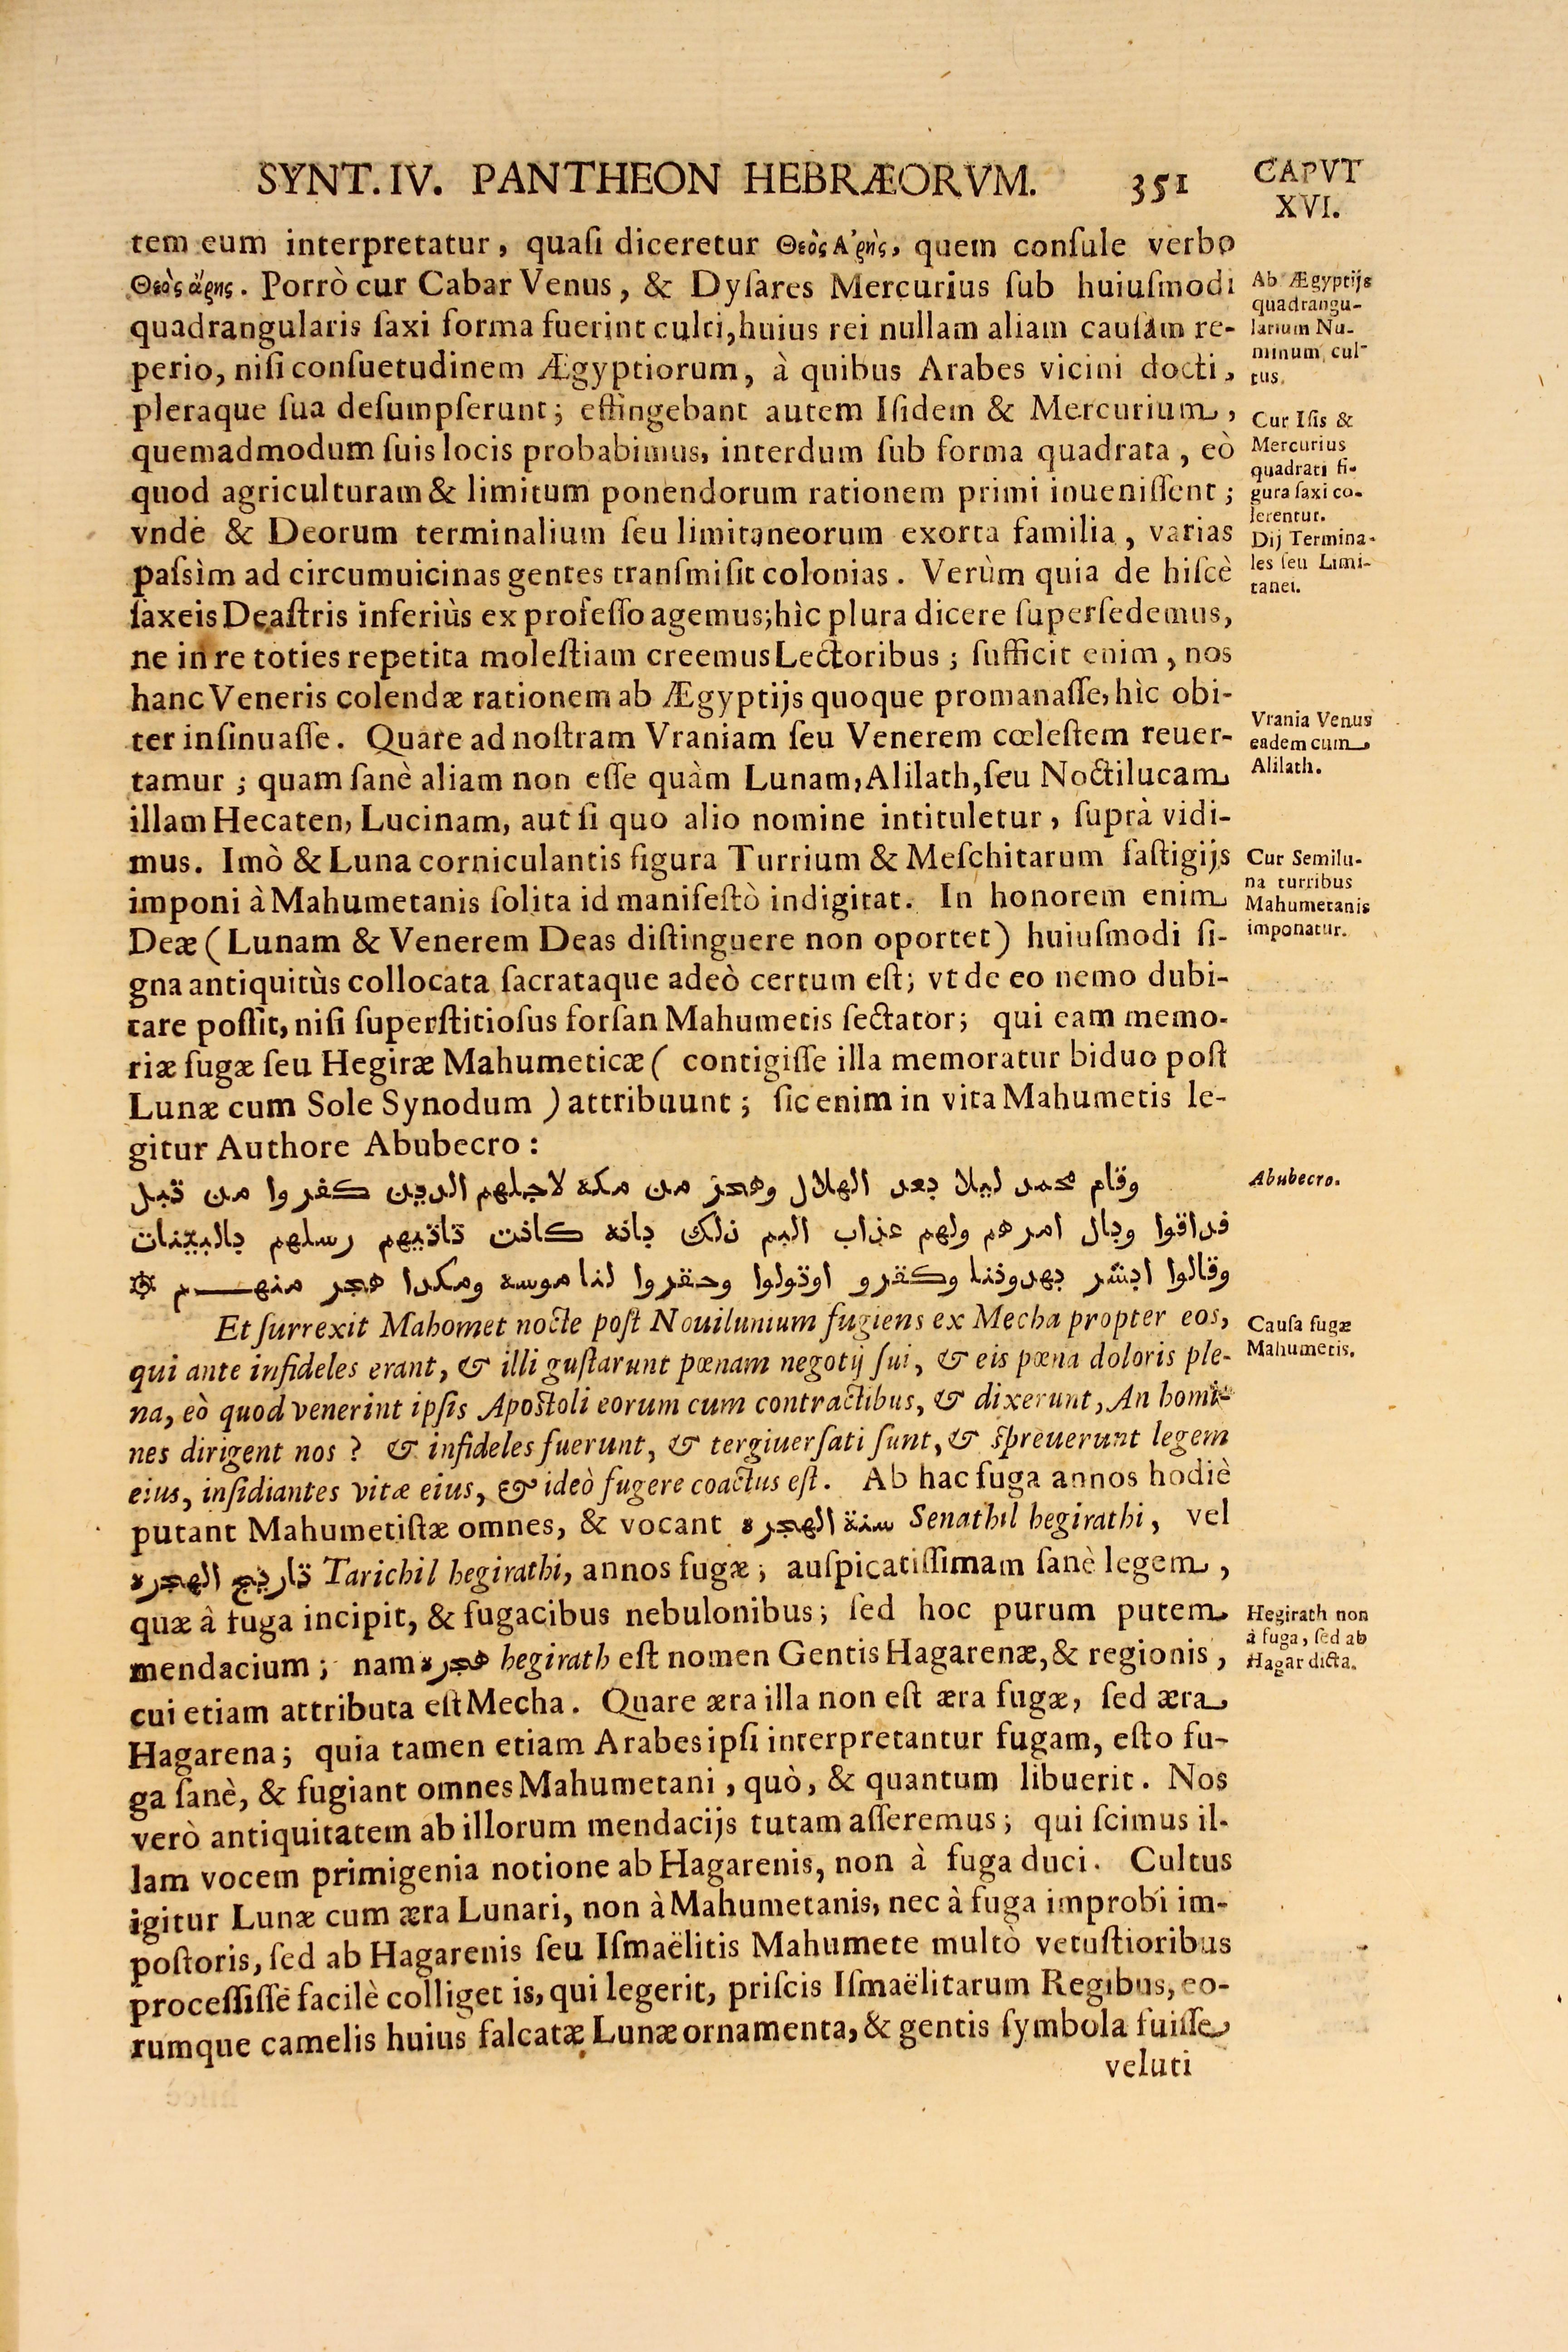 SYNT. IV. PANTHEON HEBRÆORVM. 351
CAPVT
XVI.
tem eum interpretatur, quaſi diceretur Θεὸς Α῎ρης, quem conſule verbo
Θεὸς ἄρης. Porrò cur Cabar Venus, & Dyſares Mercurius ſub huiuſmodi
quadrangularis ſaxi forma fuerint culti, huius rei nullam aliam cauſam re-
perio, niſi conſuetudinem Ægyptiorum, à quibus Arabes vicini docti,
pleraque ſua deſumpſerunt; effingebant autem Iſidem & Mercurium,
quemadmodum ſuis locis probabimus, interdum ſub forma quadrata, eò
quod agriculturam & limitum ponendorum rationem primi inueniſſent;
vnde & Deorum terminalium ſeu limitaneorum exorta familia, varias
paſsìm ad circumuicinas gentes tranſmiſit colonias. Verùm quia de hiſcè
ſaxeis Deaſtris inferiùs ex profeſſo agemus; hìc plura dicere ſuperſedemus,
ne in re toties repetita moleſtiam creemus Lectoribus; ſufficit enim, nos
hanc Veneris colendæ rationem ab Ægyptijs quoque promanaſſe, hìc obi-
ter inſinuaſſe. Quare ad noſtram Vraniam ſeu Venerem cœleſtem reuer-
tamur; quam ſanè aliam non eſſe quàm Lunam, Alilath, ſeu Noctilucam
illam Hecaten, Lucinam, aut ſi quo alio nomine intituletur, ſuprà vidi-
mus. Imò & Luna corniculantis figura Turrium & Meſchitarum faſtigijs
imponi à Mahumetanis ſolita id manifeſtò indigitat. In honorem enim
Deæ (Lunam & Venerem Deas diſtinguere non oportet) huiuſmodi ſi-
gna antiquitùs collocata ſacrataque adeò certum eſt; vt de eo nemo dubi-
tare poſſit, niſi ſuperſtitioſus forſan Mahumetis ſectator; qui eam memo-
riæ fugæ ſeu Hegiræ Mahumeticæ ( contigiſſe illa memoratur biduo poſt
Lunæ cum Sole Synodum ) attribuunt; ſic enim in vita Mahumetis le-
gitur Authore Abubecro:
وقام محمد ليلا بعد الهلال وهجز من مكه لاجلهم الدين كفروا من قبل
فداقوا وبال امرهم ولهم عذاب اليم ذلك بانه كانت تاتيهم رسلهم بالبينات
وقالوا ابشر يهدوننا وكفرو اوتولوا وحقروا لناموسه ومكدا هجر منهم ۞
Et ſurrexit Mahomet nocte poſt Nouilunium fugiens ex Mecha propter eos,
qui ante infideles erant, & illi guſtarunt pœnam negotij ſui, & eis pœna doloris ple-
na, eò quod venerint ipſis Apoſtoli eorum cum contractibus, & dixerunt, An homi-
nes dirigent nos ? & infideles fuerunt, & tergiuerſati ſunt, & ſpreuerunt legem
eius, inſidiantes vitæ eius, & ideò fugere coactus eſt. Ab hac fuga annos hodiè
putant Mahumetiſtæ omnes, & vocant سنة الهجره Senathil hegirathi, vel
تاريخ الهجره Tarichil hegirathi, annos fugæ; auſpicatiſſimam ſanè legem,
quæ â fuga incipit, & fugacibus nebulonibus; ſed hoc purum putem
mendacium; nam هجره hegirath eſt nomen Gentis Hagarenæ, & regionis,
cui etiam attributa eſt Mecha. Quare æra illa non eſt æra fugæ, ſed æra
Hagarena; quia tamen etiam Arabes ipſi interpretantur fugam, eſto fu-
ga ſanè, & fugiant omnes Mahumetani, quò, & quantum libuerit. Nos
verò antiquitatem ab illorum mendacijs tutam aſſeremus; qui ſcimus il-
lam vocem primigenia notione ab Hagarenis, non à fuga duci. Cultus
igitur Lunæ cum æra Lunari, non à Mahumetanis, nec à fuga improbi im-
poſtoris, ſed ab Hagarenis ſeu Iſmaëlitis Mahumete multò vetuſtioribus
proceſſiſſe facilè colliget is, qui legerit, priſcis Iſmaëlitarum Regibus, eo-
rumque camelis huius falcatæ Lunæ ornamenta, & gentis ſymbola fuiſſe
veluti
Ab Ægyptijs
quadrangu-
larium Nu-
minum cul-
tus.
Cur Iſis &
Mercurius
quadrati fi-
gura ſaxi co-
lerentur.
Dij Termina-
les ſeu Limi-
tanei.
Vrania Venus
eadem cum
Alilath.
Cur Semilu-
na turribus
Mahumetanis
imponatur.
Abubecro.
Cauſa fugæ
Mahumetis.
Hegirath non
à fuga, ſed ab
Hagar dicta.